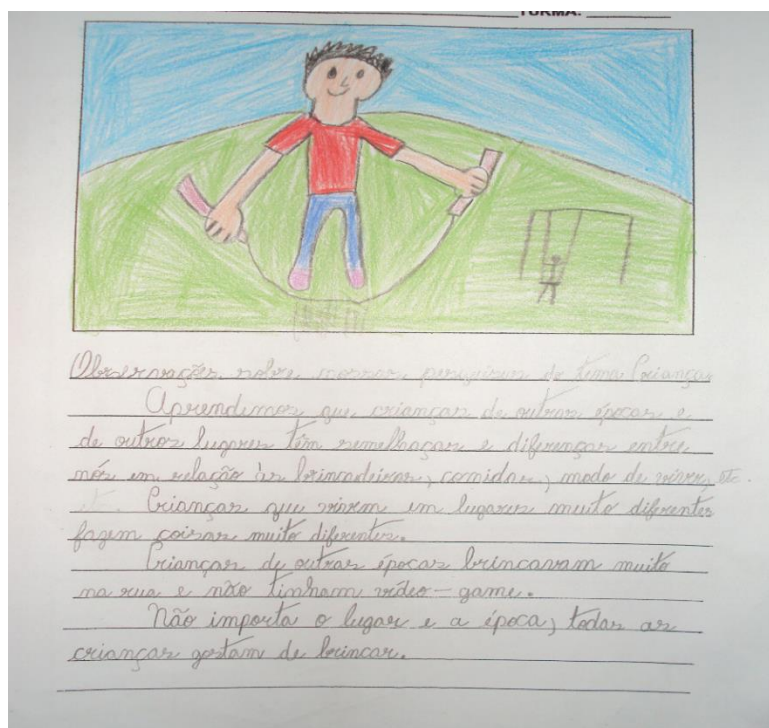 TURMA:
Observações sobre nossas pesquisas do tema Crianças
Aprendemos que crianças de outras épocas e
de outros lugares têm semelhaças e diferenças entre
nós em relação às brincadeiras, comidas, modo de viver, etc.
Crianças que vivem em lugares muito diferentes
fazem coisas muito diferentes.
Crianças de outras épocas brincavam muito
na rua e não tinham vídeo-game.
Não importa o lugar e a época, todas as
crianças gostam de brincar.